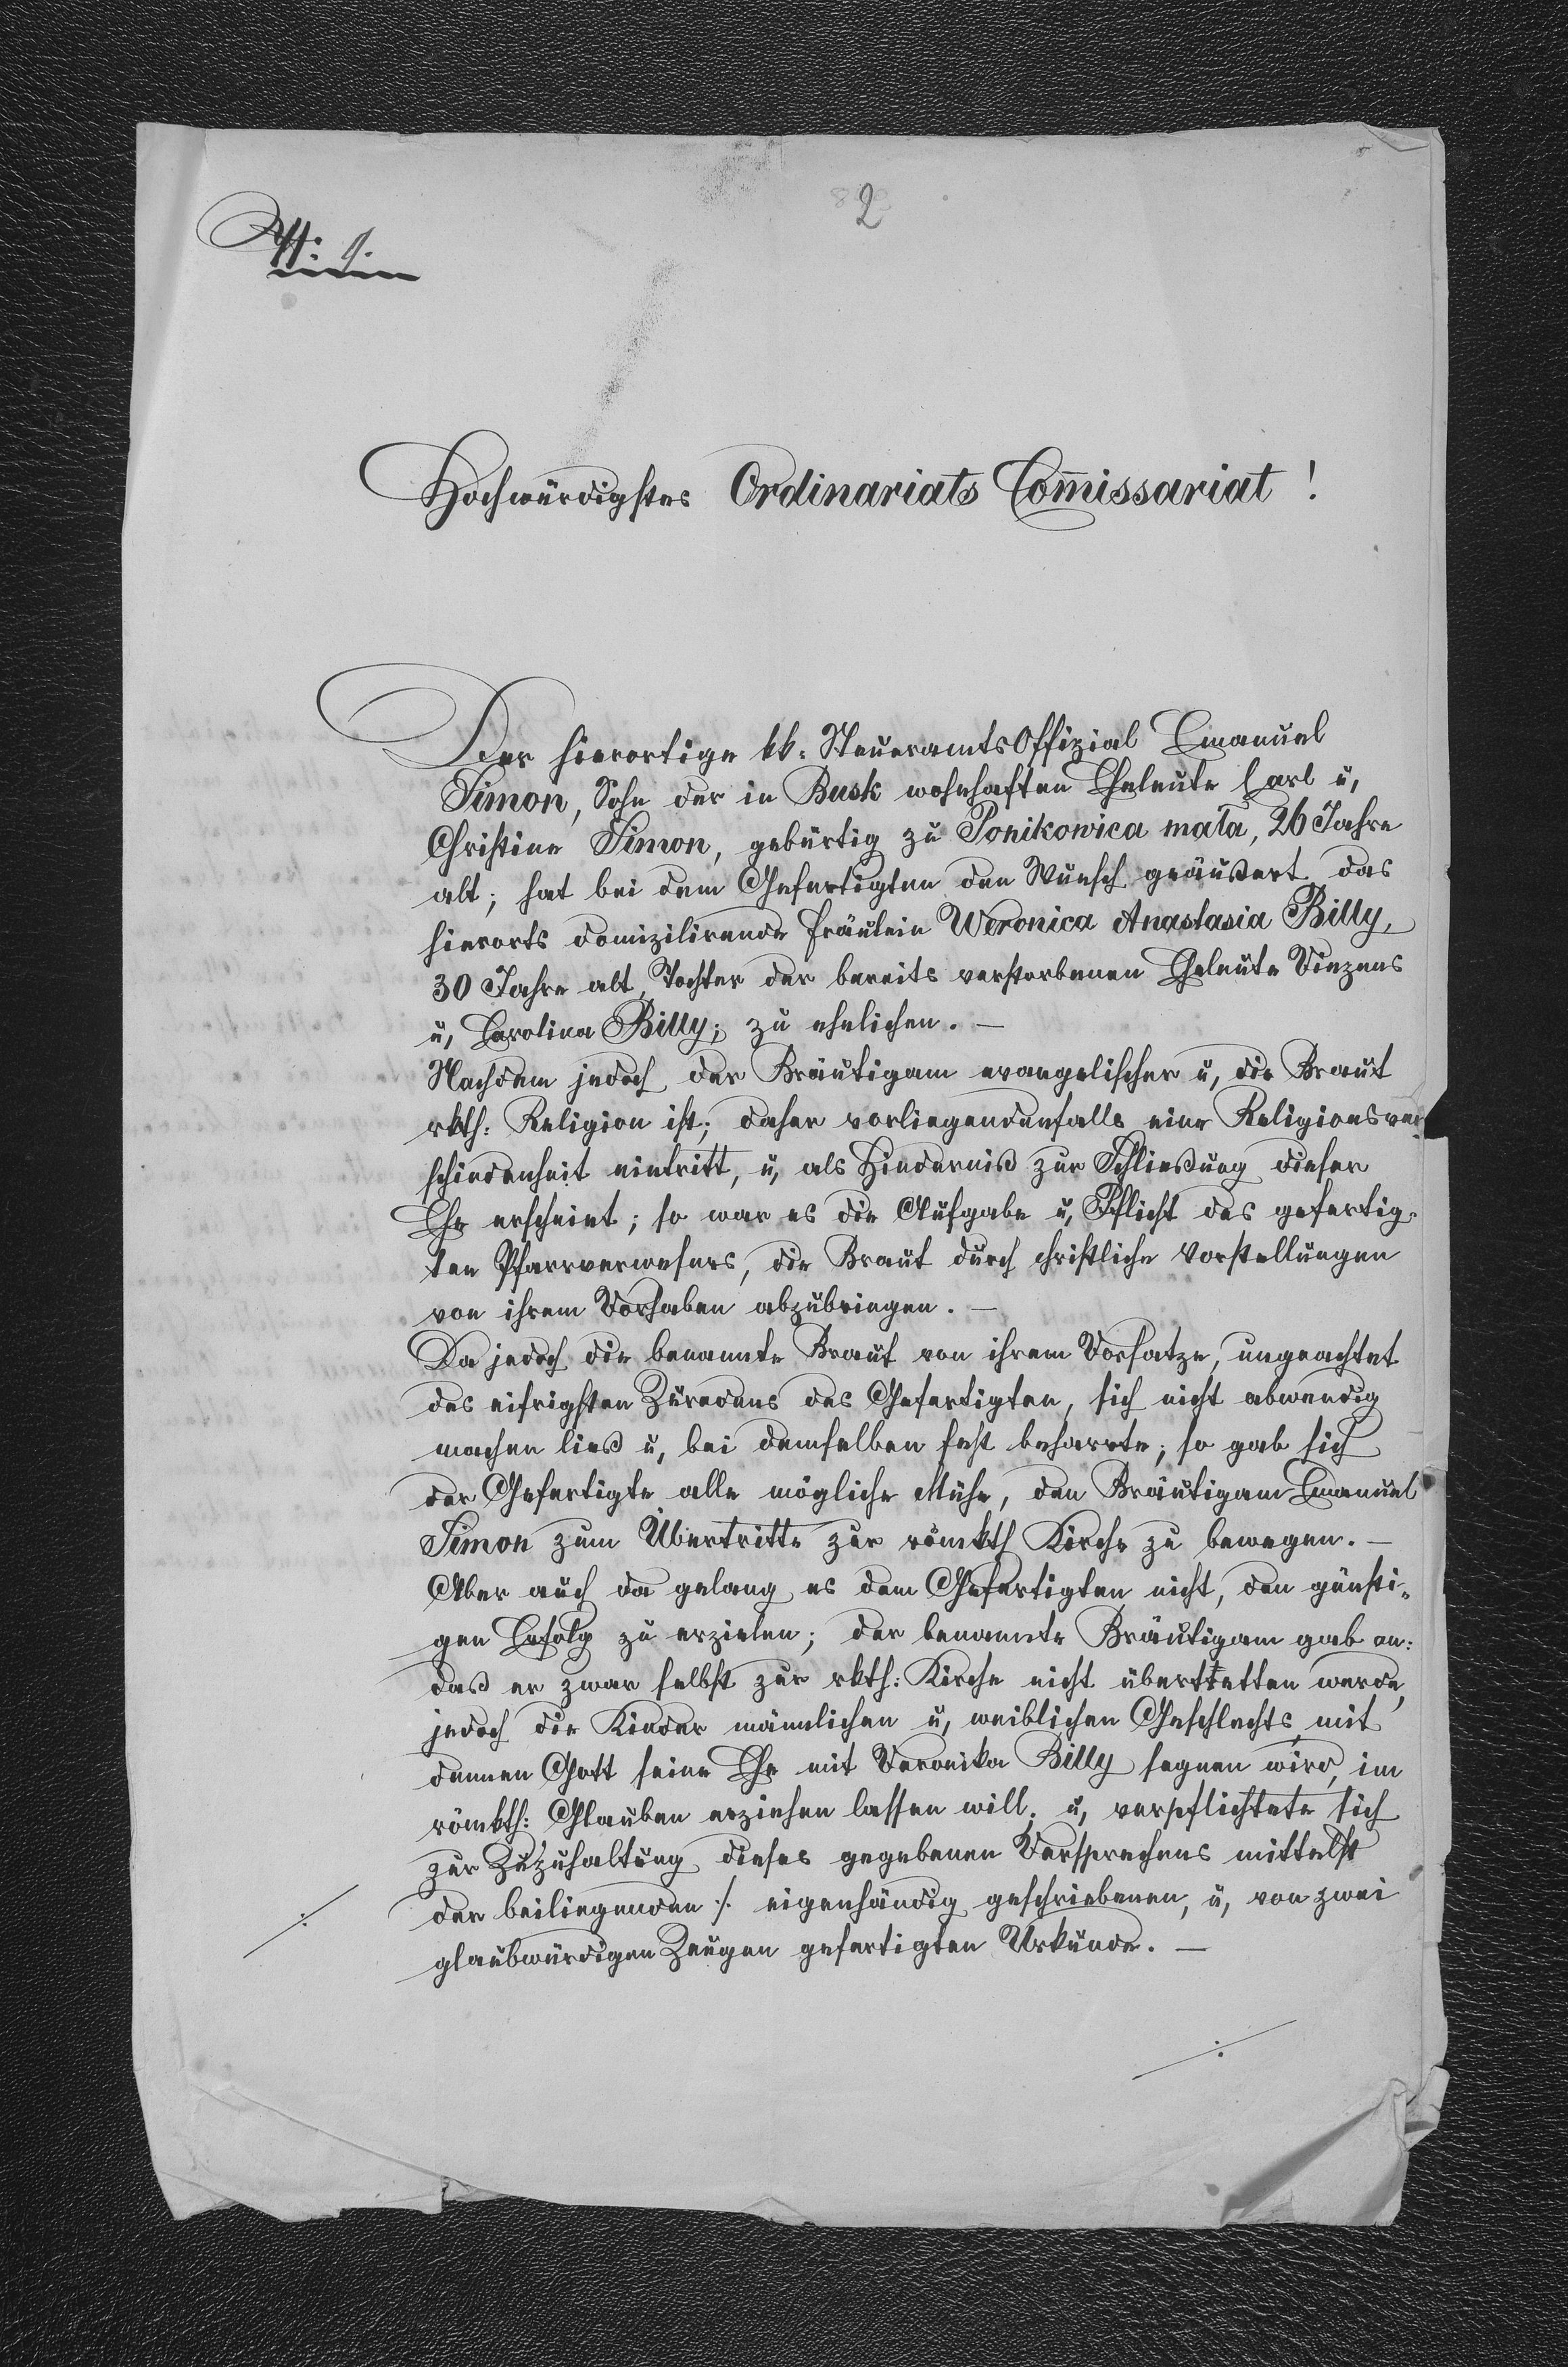 2
Hochwürdigstes Ordinariats Com̄issariat!
Der hierortige kk: SteueramtsOffizial Emanuel
Simon, Sohn der in Busk wohnhaften Eheleute Carl u,
Christine Simon, gebürtig zu Ponikowica mała, 26 Jahre
alt; hat bei dem Gefertigten den Wunsch geäußert das
hierorts domizilirende Fräulein Weronica Anastasia Billy,
30 Jahre alt, Tochter der bereits verstorbenen Eheleute Vinzens
u, Carolina Billy; zu ehelichen. —
Nachdem jedoch der Bräutigam evangelischer u, die Braut
rkth: Religion ist; daher vorliegendenfalls eine Religionsver-
schiedenheit eintritt, u, als Hinderniß zur Schließung dieser
Ehe erscheint; so war es die Aufgabe u, Pflicht des gefertig-
ten Pfarrverwesers, die Braut durch christliche Vorstellungen
von ihrem Vorhaben abzubringen. —
Da jedoch die benannte Braut von ihrem Vorsatze, ungeachtet
des eifrigsten Zuredens des Gefertigten, sich nicht abwendig
machen ließ u, bei demselben fest beharrte; so gab sich
der Gefertigte alle mögliche Mühe, den Bräutigam Emanuel
Simon zum Übertritte zur römkth Kirche zu bewegen. —
Aber auch da gelang es dem Gefertigten nicht, den günsti-
gen Erfolg zu erzielen; der benannte Bräutigam gab an:
daß er zwar selbst zur rkth: Kirche nicht übertretten werde,
jedoch die Kinder männlichen u, weiblichen Geschlechts mit
dennen Gott seine Ehe mit Veronika Billy segnen wird, im
römkth: Glauben erziehen lassen will, u, verpflichtete sich
zur Zuzuhaltung dieses gegebenen Versprechens mittelst
der beiliegenden ·/. eigenhändig geschriebenen, u, von zwei
glaubwürdigen Zeugen gefertigten Urkunde. —